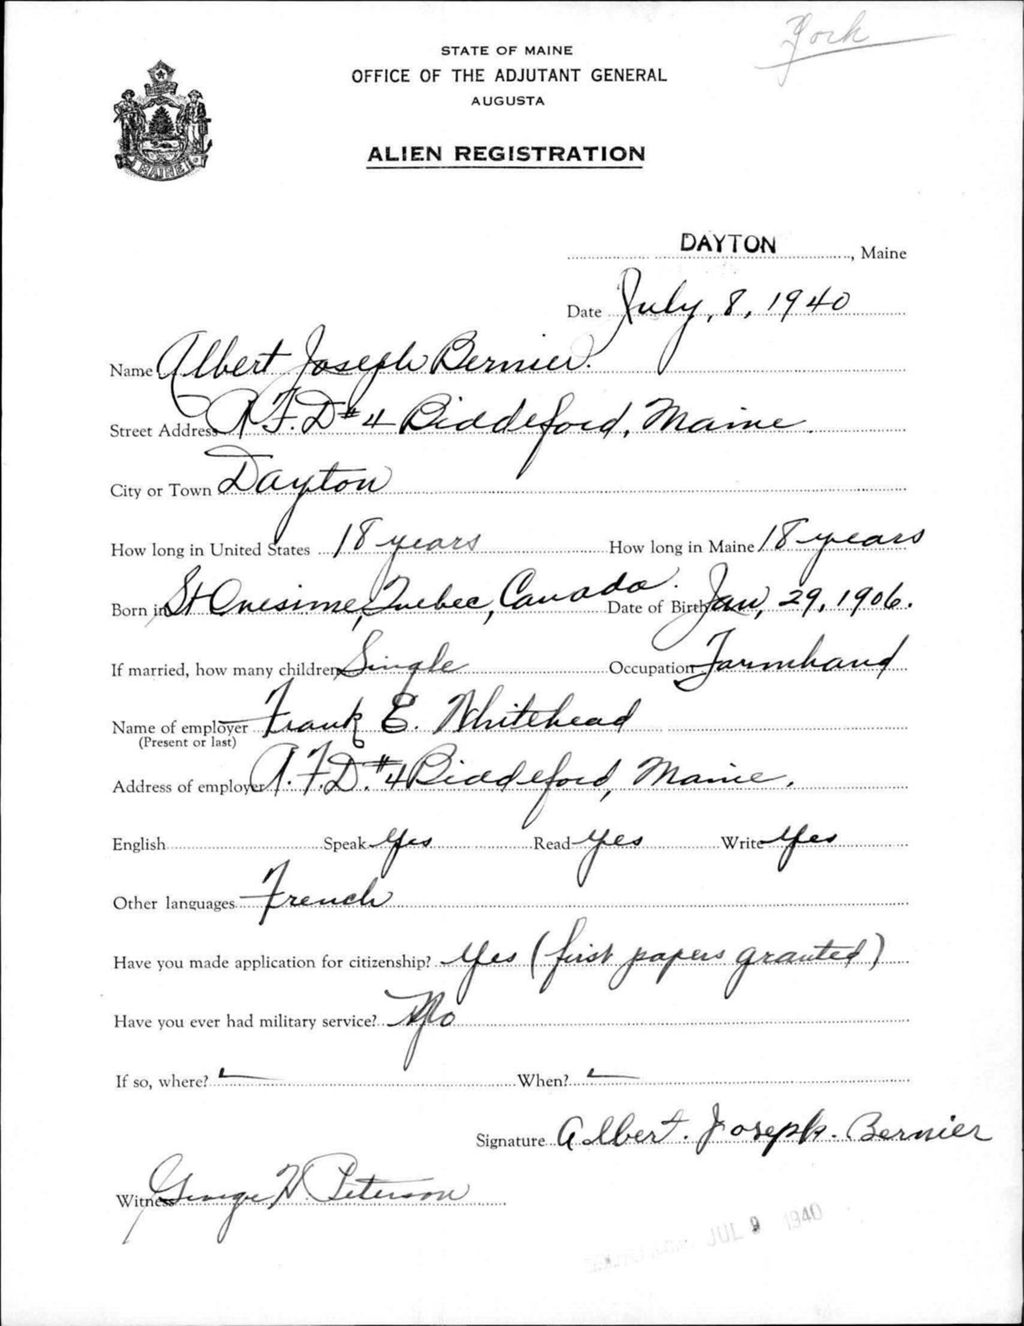 York
STATE OF MAINE
OFFICE OF THE ADJUTANT GENERAL
AUGUSTA
ALIEN REGISTRATION
MAINE
DAYTON, Maine
Date July, 8, 1940
Name Albert Joseph Bernier.
Street Address R.F.D #4 Biddeford, Maine.
City or Town Dayton
How long in United States 18 years How long in Maine 18 years
Born in St Onesime, Quebec, Canada. Date of Birth Jan, 29, 1906.
If married, how many children Single Occupation Farmhand
Name of employer Frank E. Whitehead
(Present or last)
Address of employer R.F.D. #4 Biddeford, Maine.
English Speak Yes Read Yes Write Yes
Other languages French
Have you made application for citizenship? Yes (first papers granted)
Have you ever had military service? No
If so, where? When?
Signature Albert. Joseph. Bernier
Witness George H. Peterson
JUL 9 1940